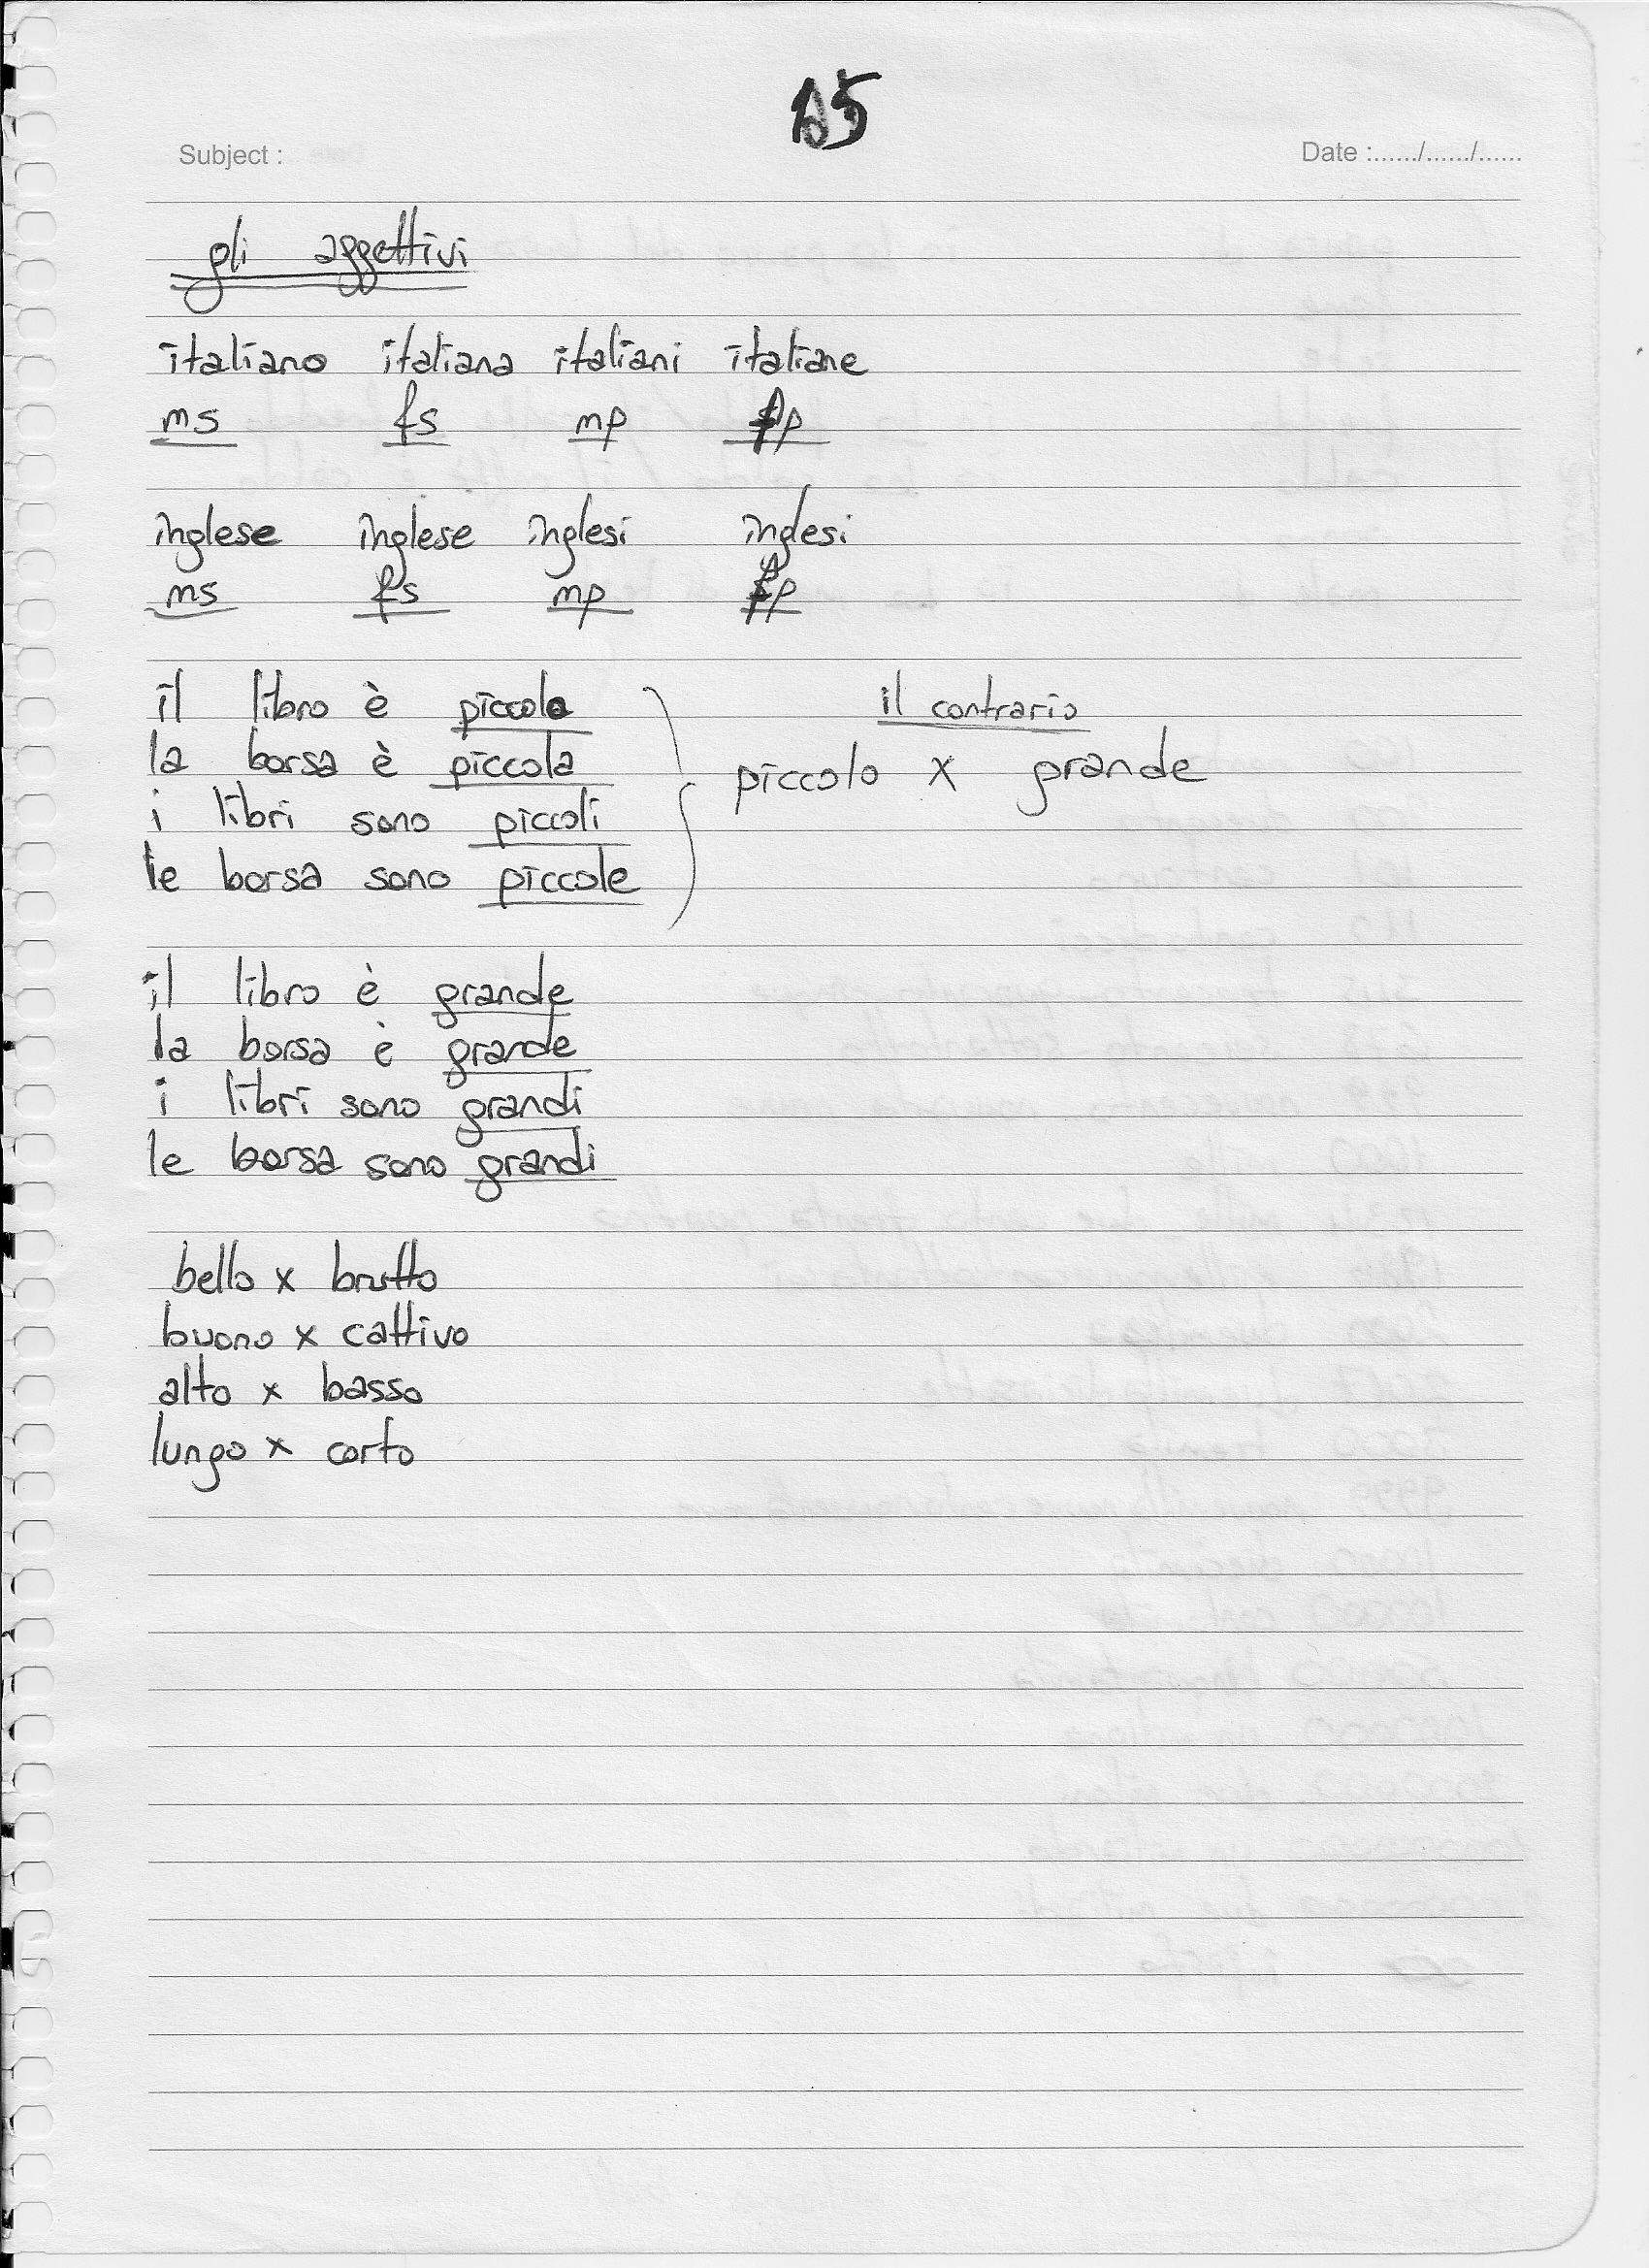 15
Subject : Date :....../....../......
gli aggettivi
italiano italiana italiani italiane
ms fs mp fp
inglese inglese inglesi inglesi
ms fs mp fp
il libro è piccolo
la borsa è piccola
i libri sono piccoli
le borsa sono piccole
il contrario
piccolo x grande
il libro è grande
la borsa è grande
i libri sono grandi
le borsa sono grandi
bello x brutto
buono x cattivo
alto x basso
lungo x corto